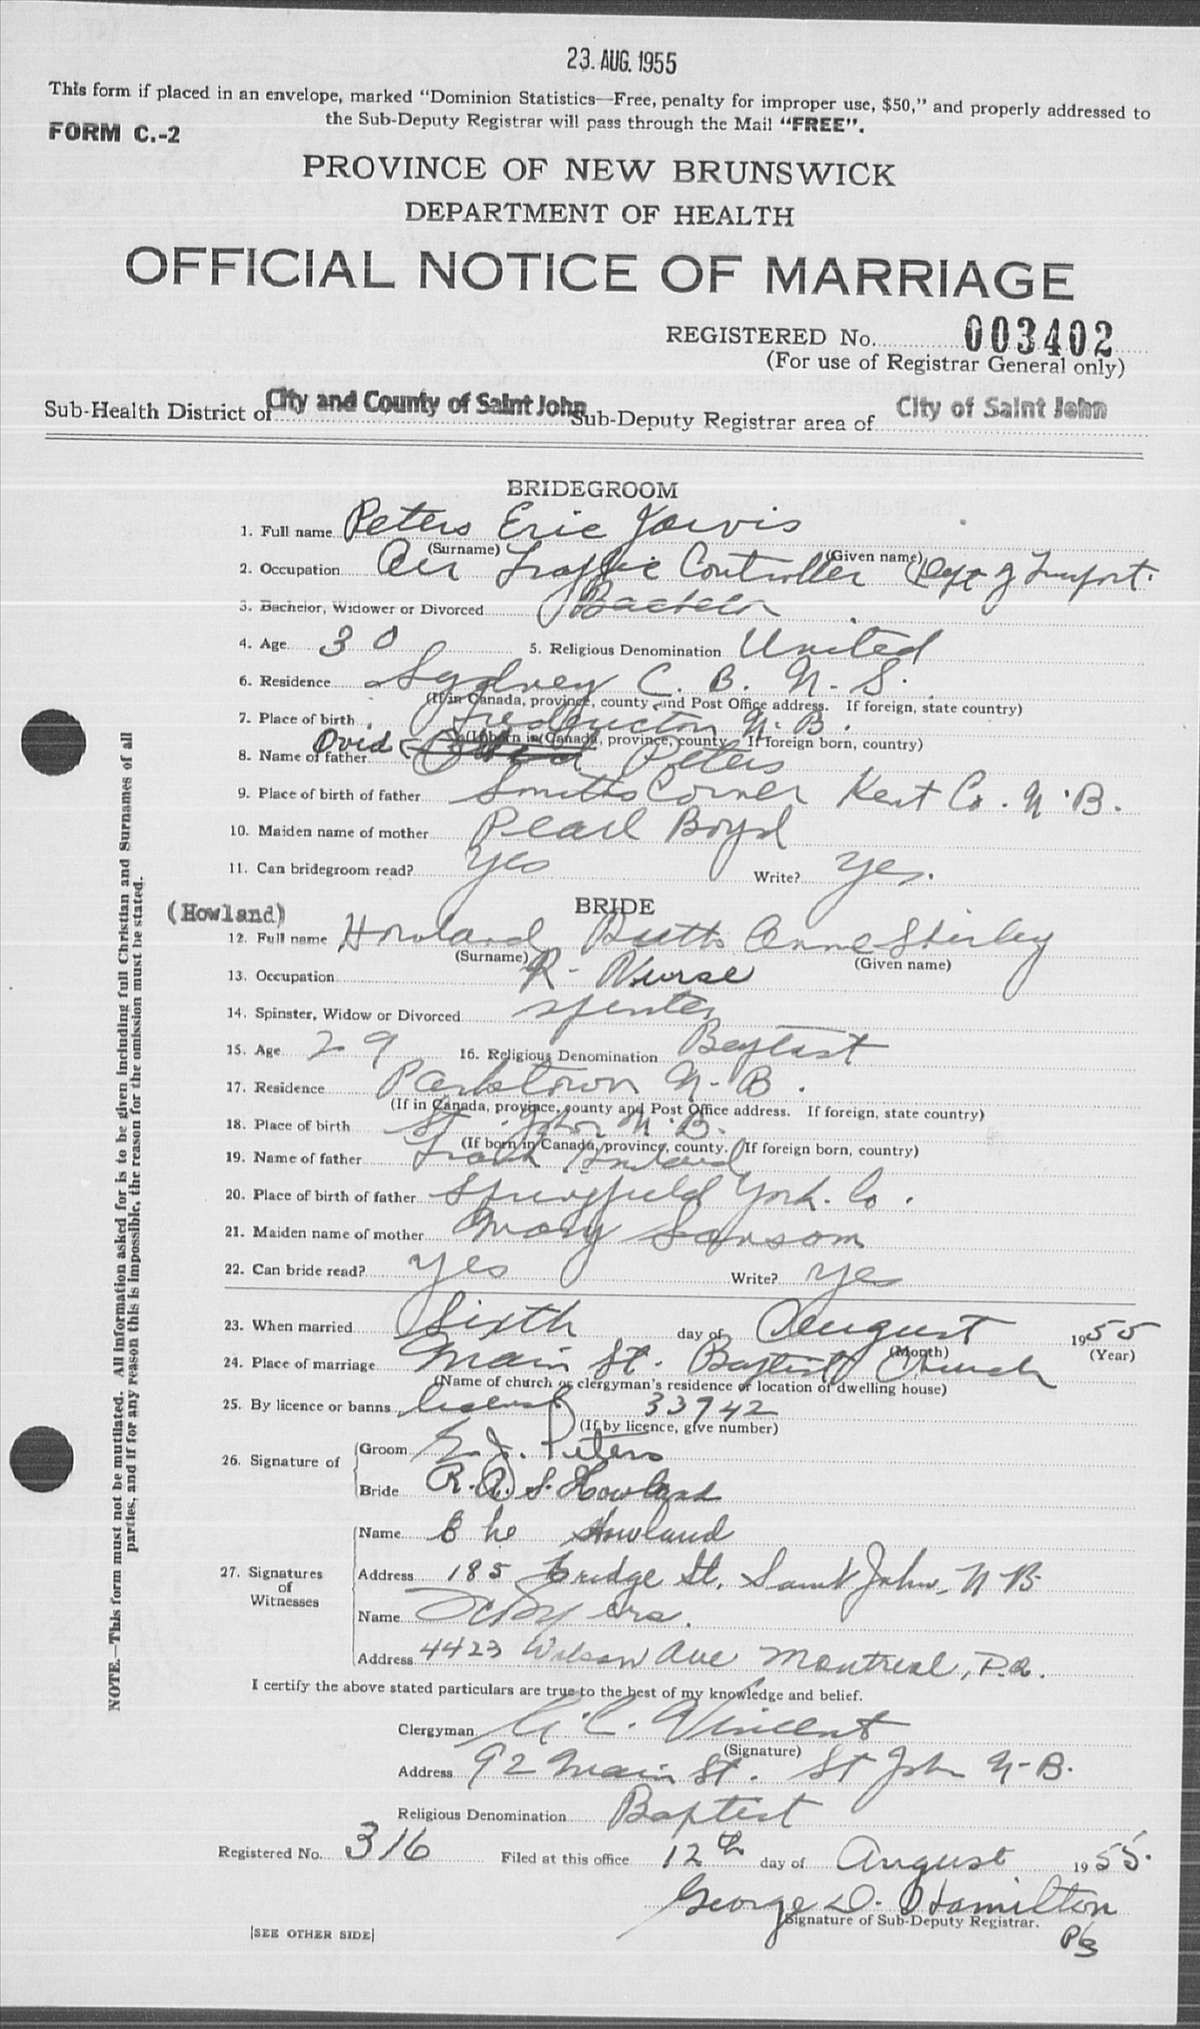 23. AUG. 1955
This form if placed in an envelope, marked "Dominion Statistics—Free, penalty for improper use, $50," and properly addressed to
the Sub-Deputy Registrar will pass through the Mail "FREE".
FORM C.-2
PROVINCE OF NEW BRUNSWICK
DEPARTMENT OF HEALTH
OFFICIAL NOTICE OF MARRIAGE
REGISTERED No. 003402
(For use of Registrar General only)
Sub-Health District of City and County of Saint John Sub-Deputy Registrar area of City of Saint John
BRIDEGROOM
1. Full name Peters Eric Jarvis
(Surname) (Given name)
2. Occupation Air Traffic Controller Dept of Transport.
3. Bachelor, Widower or Divorced Bachelor
4. Age 30 5. Religious Denomination United
6. Residence Sydney C. B. N. S.
(If in Canada, province, county and Post Office address. If foreign, state country)
7. Place of birth Fredericton N. B.
(If born in Canada, province, county. If foreign born, country)
8. Name of father Ovid Peters
9. Place of birth of father Smiths Corner Kent Co. N. B.
10. Maiden name of mother Pearl Boyd
11. Can bridegroom read? Yes Write? Yes.
BRIDE
(Howland)
12. Full name Howland Ruth Anne Shirley
(Surname) (Given name)
13. Occupation R- Nurse
14. Spinster, Widow or Divorced Spinster
15. Age 29 16. Religious Denomination Baptist
17. Residence N-B.
(If in Canada, province, county and Post Office address. If foreign, state country)
18. Place of birth St. John N. B.
(If born in Canada, province, county. If foreign born, country)
19. Name of father Frank Howland
20. Place of birth of father Springfield York. Co.
21. Maiden name of mother Mary Sansom
22. Can bride read? Yes Write? Yes
23. When married Sixth day of August 1955
(Month) (Year)
24. Place of marriage Main St. Baptist Church
(Name of church or clergyman's residence or location of dwelling house)
25. By licence or banns license 33942
(If by licence, give number)
26. Signature of Groom E. J. Peters
Bride R. A. S. Howland
27. Signatures of Witnesses
Name Howland
Address 185 Bridge St. Saint John, N B
Name
Address 4423 Wilson Ave Montreal, P.Q.
I certify the above stated particulars are true to the best of my knowledge and belief.
Clergyman Vincent
(Signature)
Address 92 Main St. St John N-B.
Religious Denomination Baptist
Registered No. 316 Filed at this office 12th day of August 1955.
George D. Hamilton
Signature of Sub-Deputy Registrar.
[SEE OTHER SIDE]
NOTE.—This form must not be mutilated. All information asked for is to be given including full Christian and Surnames of all
parties, and if for any reason this is impossible, the reason for the omission must be stated.